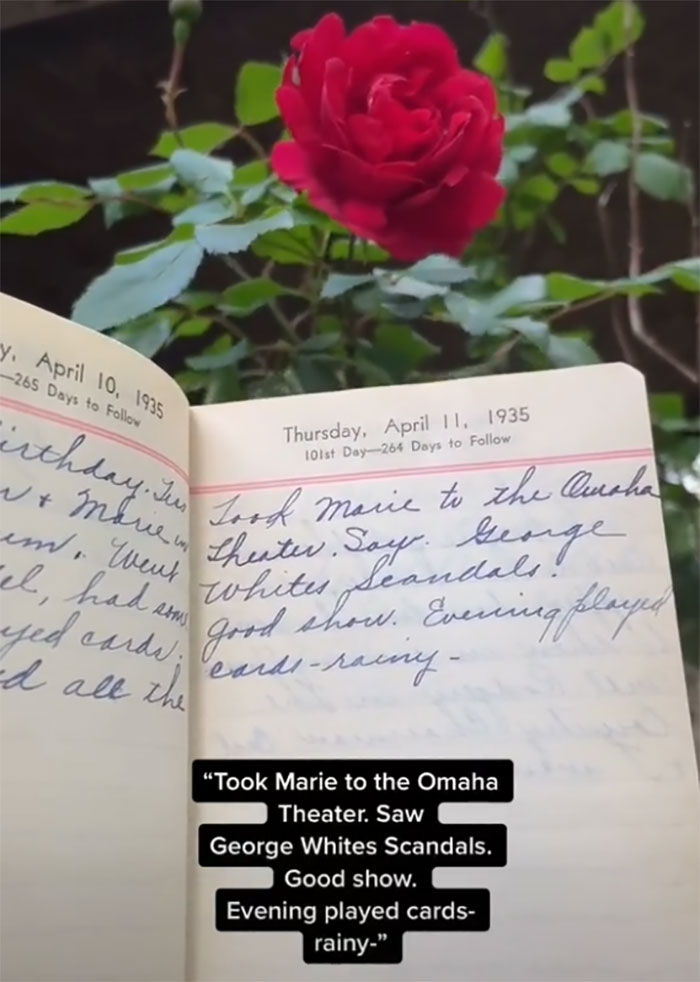 y, April 10, 1935
—265 Days to Follow
irthday.
& Marie
Went
el, had som
yed cards.
d all the
Thursday, April 11, 1935
101st Day—264 Days to Follow
Took Marie to the Omaha
Theater. Saw. George
Whites Scandals.
Good show. Evening played
cards-rainy-
“Took Marie to the Omaha
Theater. Saw
George Whites Scandals.
Good show.
Evening played cards-
rainy-”